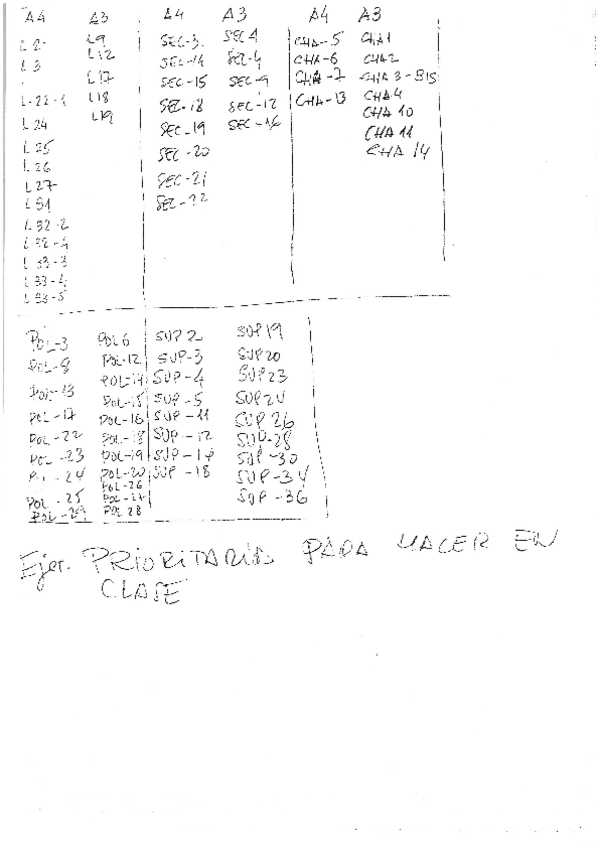 A4 A3 A4 A3 A4 A3
L2 L9 SEC-3 SEC 1 CHA-5 CHA1
L3 L12 SEC-14 SEC-4 CHA-6 CHA2
L17 SEC-15 SEC-9 CHA-7 CHA 3-BIS
L-22-1 L18 SEC-18 SEC-12 CHA-13 CHA 4
L24 L19 SEC-19 SEC-16 CHA 10
L25 SEC-20 CHA 11
L26 SEC-21 CHA 14
L27 SEC-22
L31
L32-2
L32-4
L33-3
L33-4
L33-5
POL-3 POL6 SUP 2 SUP19
POL-8 POL-12 SUP-3 SUP20
POL-13 POL-14 SUP-4 SUP23
POL-17 POL-15 SUP-5 SUP24
POL-22 POL-16 SUP-11 SUP 26
POL-23 POL-18 SUP-12 SUP-28
-24 POL-19 SUP-17 SUP-30
POL-25 POL-20 SUP-18 SUP-34
POL-29 POL-26 SUP-36
POL-27
POL 28
Ejer. PRIORITARIOS PARA HACER EN
CLASE